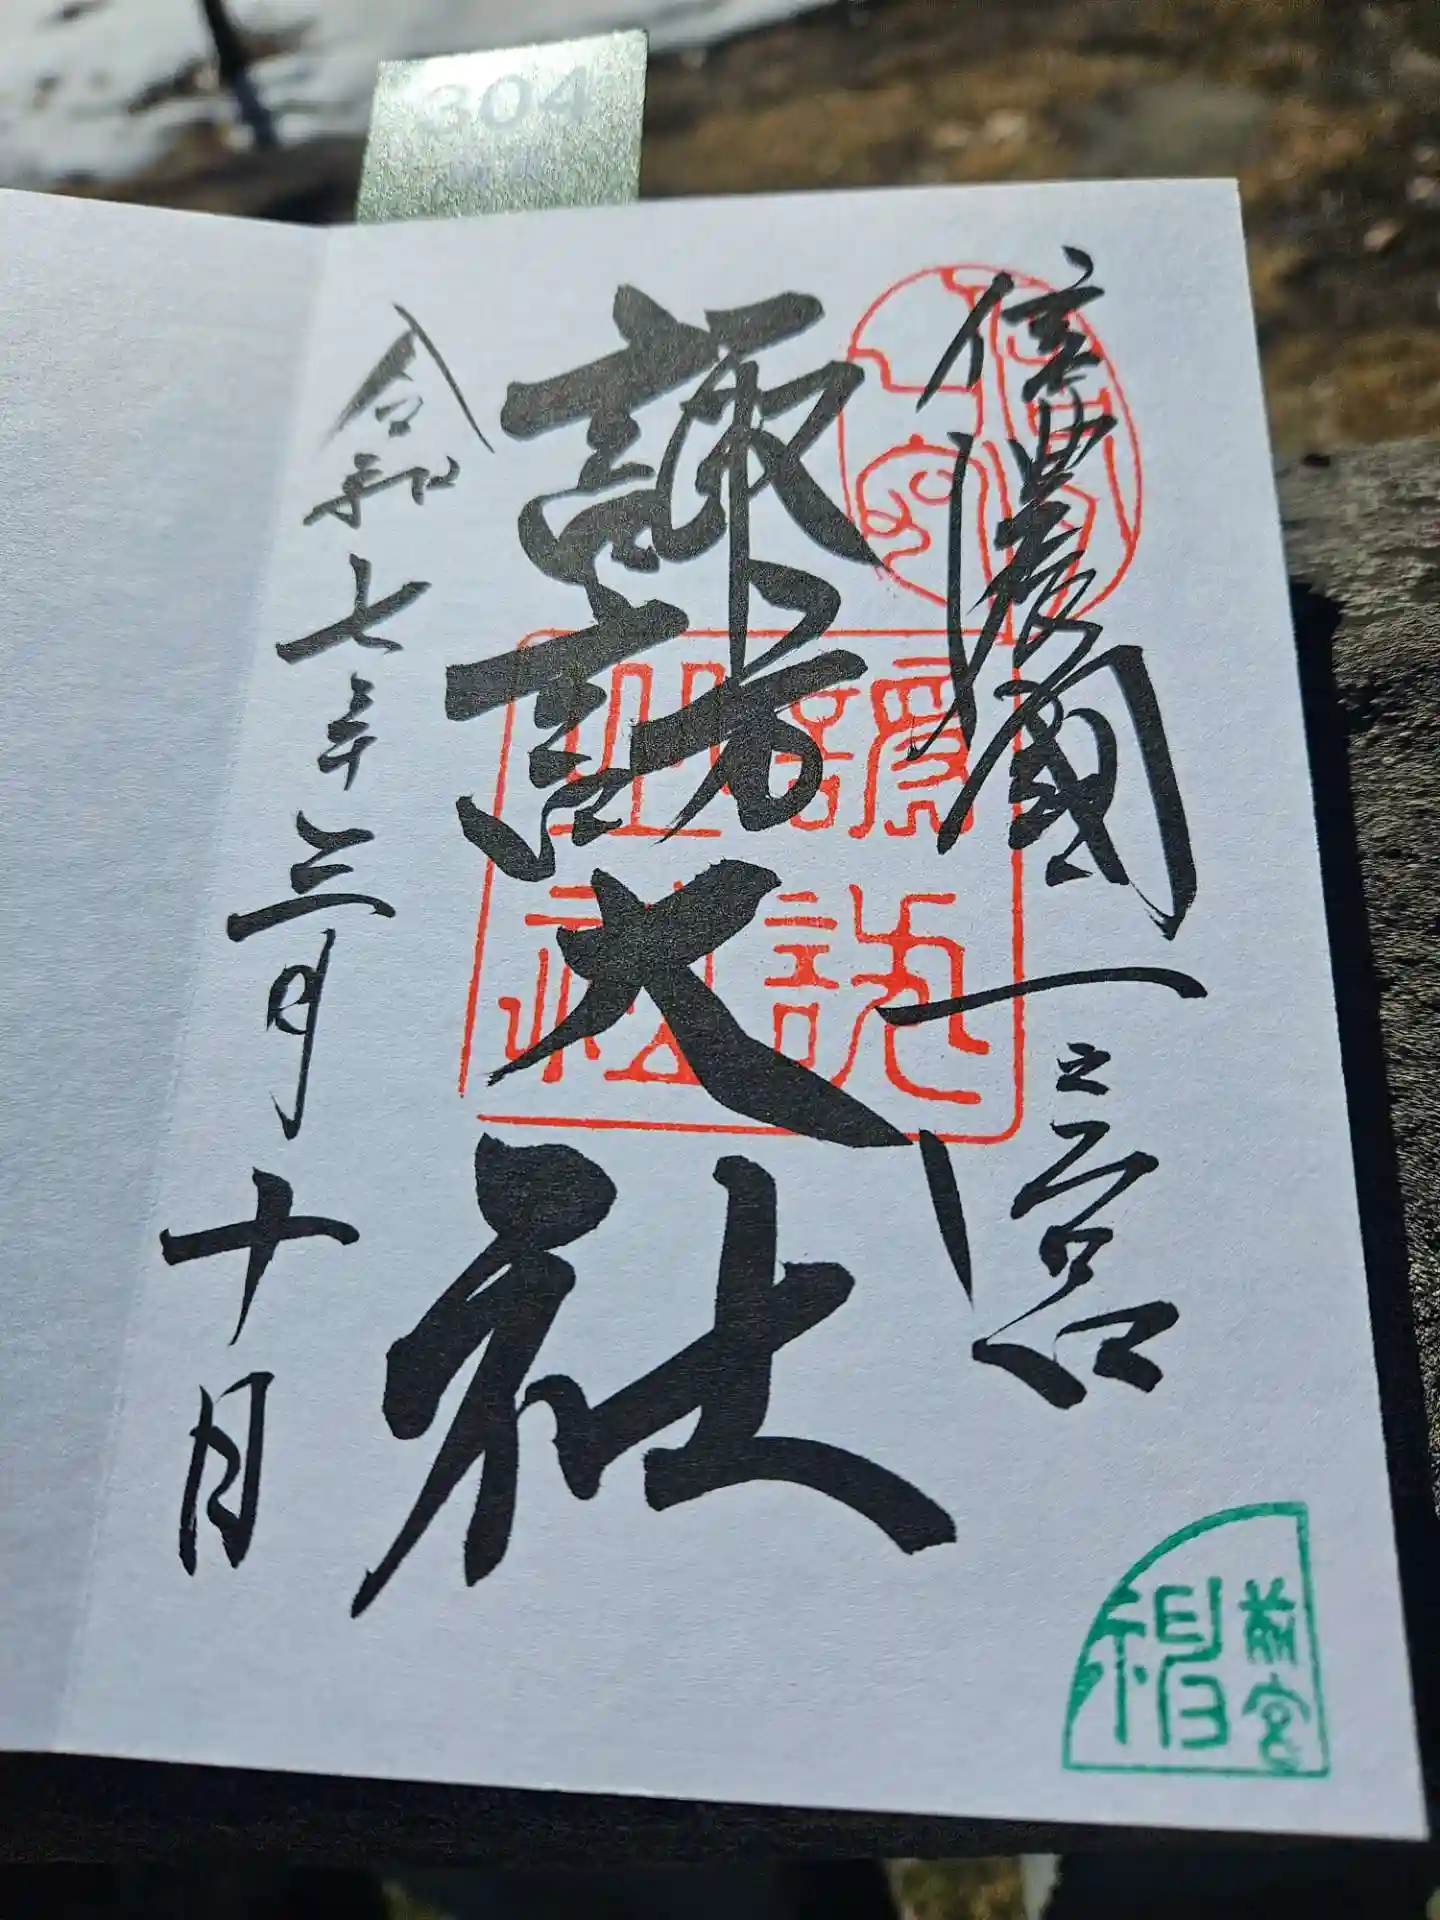 信濃國一之宮
諏訪大社
令和七年三月十日
304
前宮